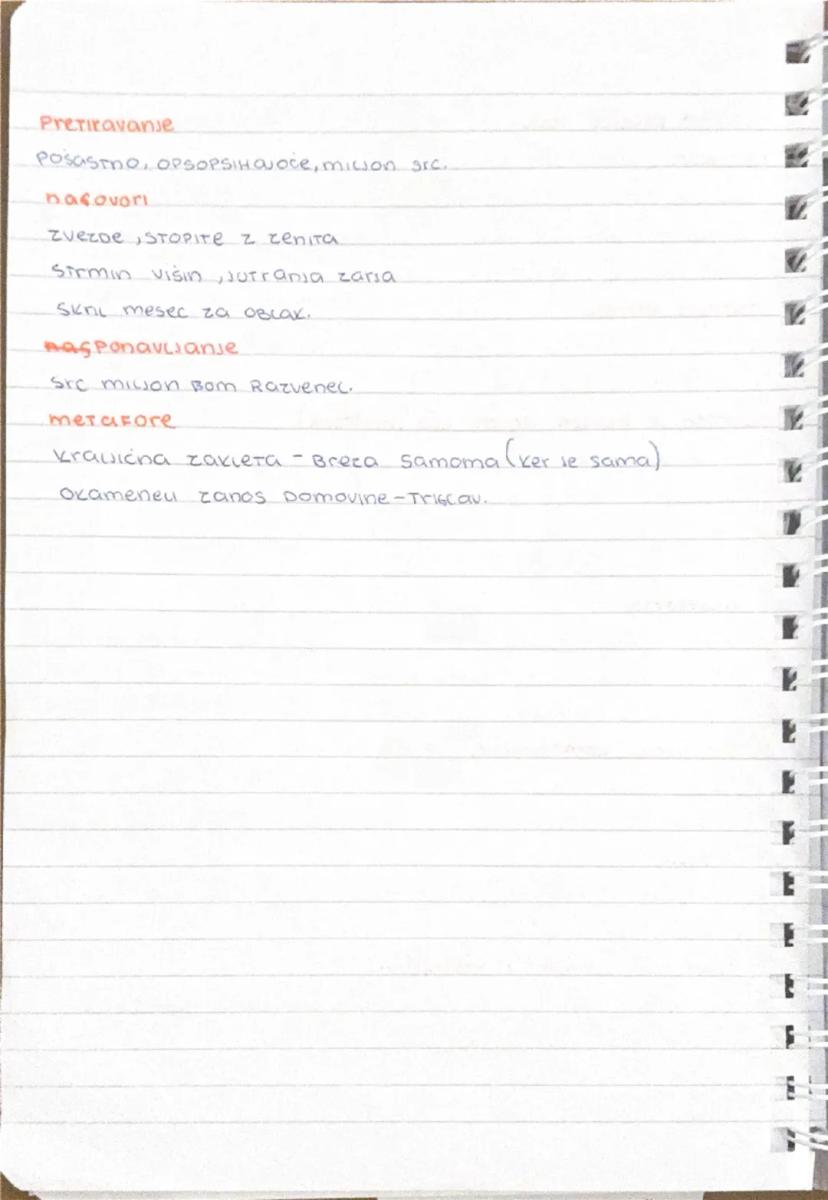 Pretiravanje
Pošastno, opsopsihajoče, miljon src.
nagovori
zvezde, stopite z zenita
strmin višin, jutranja zarja
skril mesec za oblak.
nag Ponavljanje
src miljon Bom Razvenel.
metafore
Kraljična zakleta - Breza samoma (ker je sama)
Okamenel zanos Domovine - Triglav.